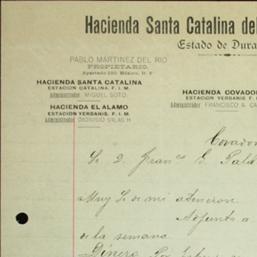 Hacienda Santa Catalina del
Estado de Dura
PABLO MARTINEZ DEL RIO
PROPIETARIO.
Apartado 250. México, D. F.
HACIENDA SANTA CATALINA
ESTACION CATALINA, F. I. M.
Administrador MIGUEL SOTO.
HACIENDA COVADO
ESTACION YERBANIS, F. I.
Administrador FRANCISCO A. G
HACIENDA EL ALAMO
ESTACION YERBANIS, F. I. M.
Administrador DIONISIO SALAS H
Covadon
Sr. D. Franco
Muy Sr. mi atencion.
Adjunto a
de la semana
Dinero